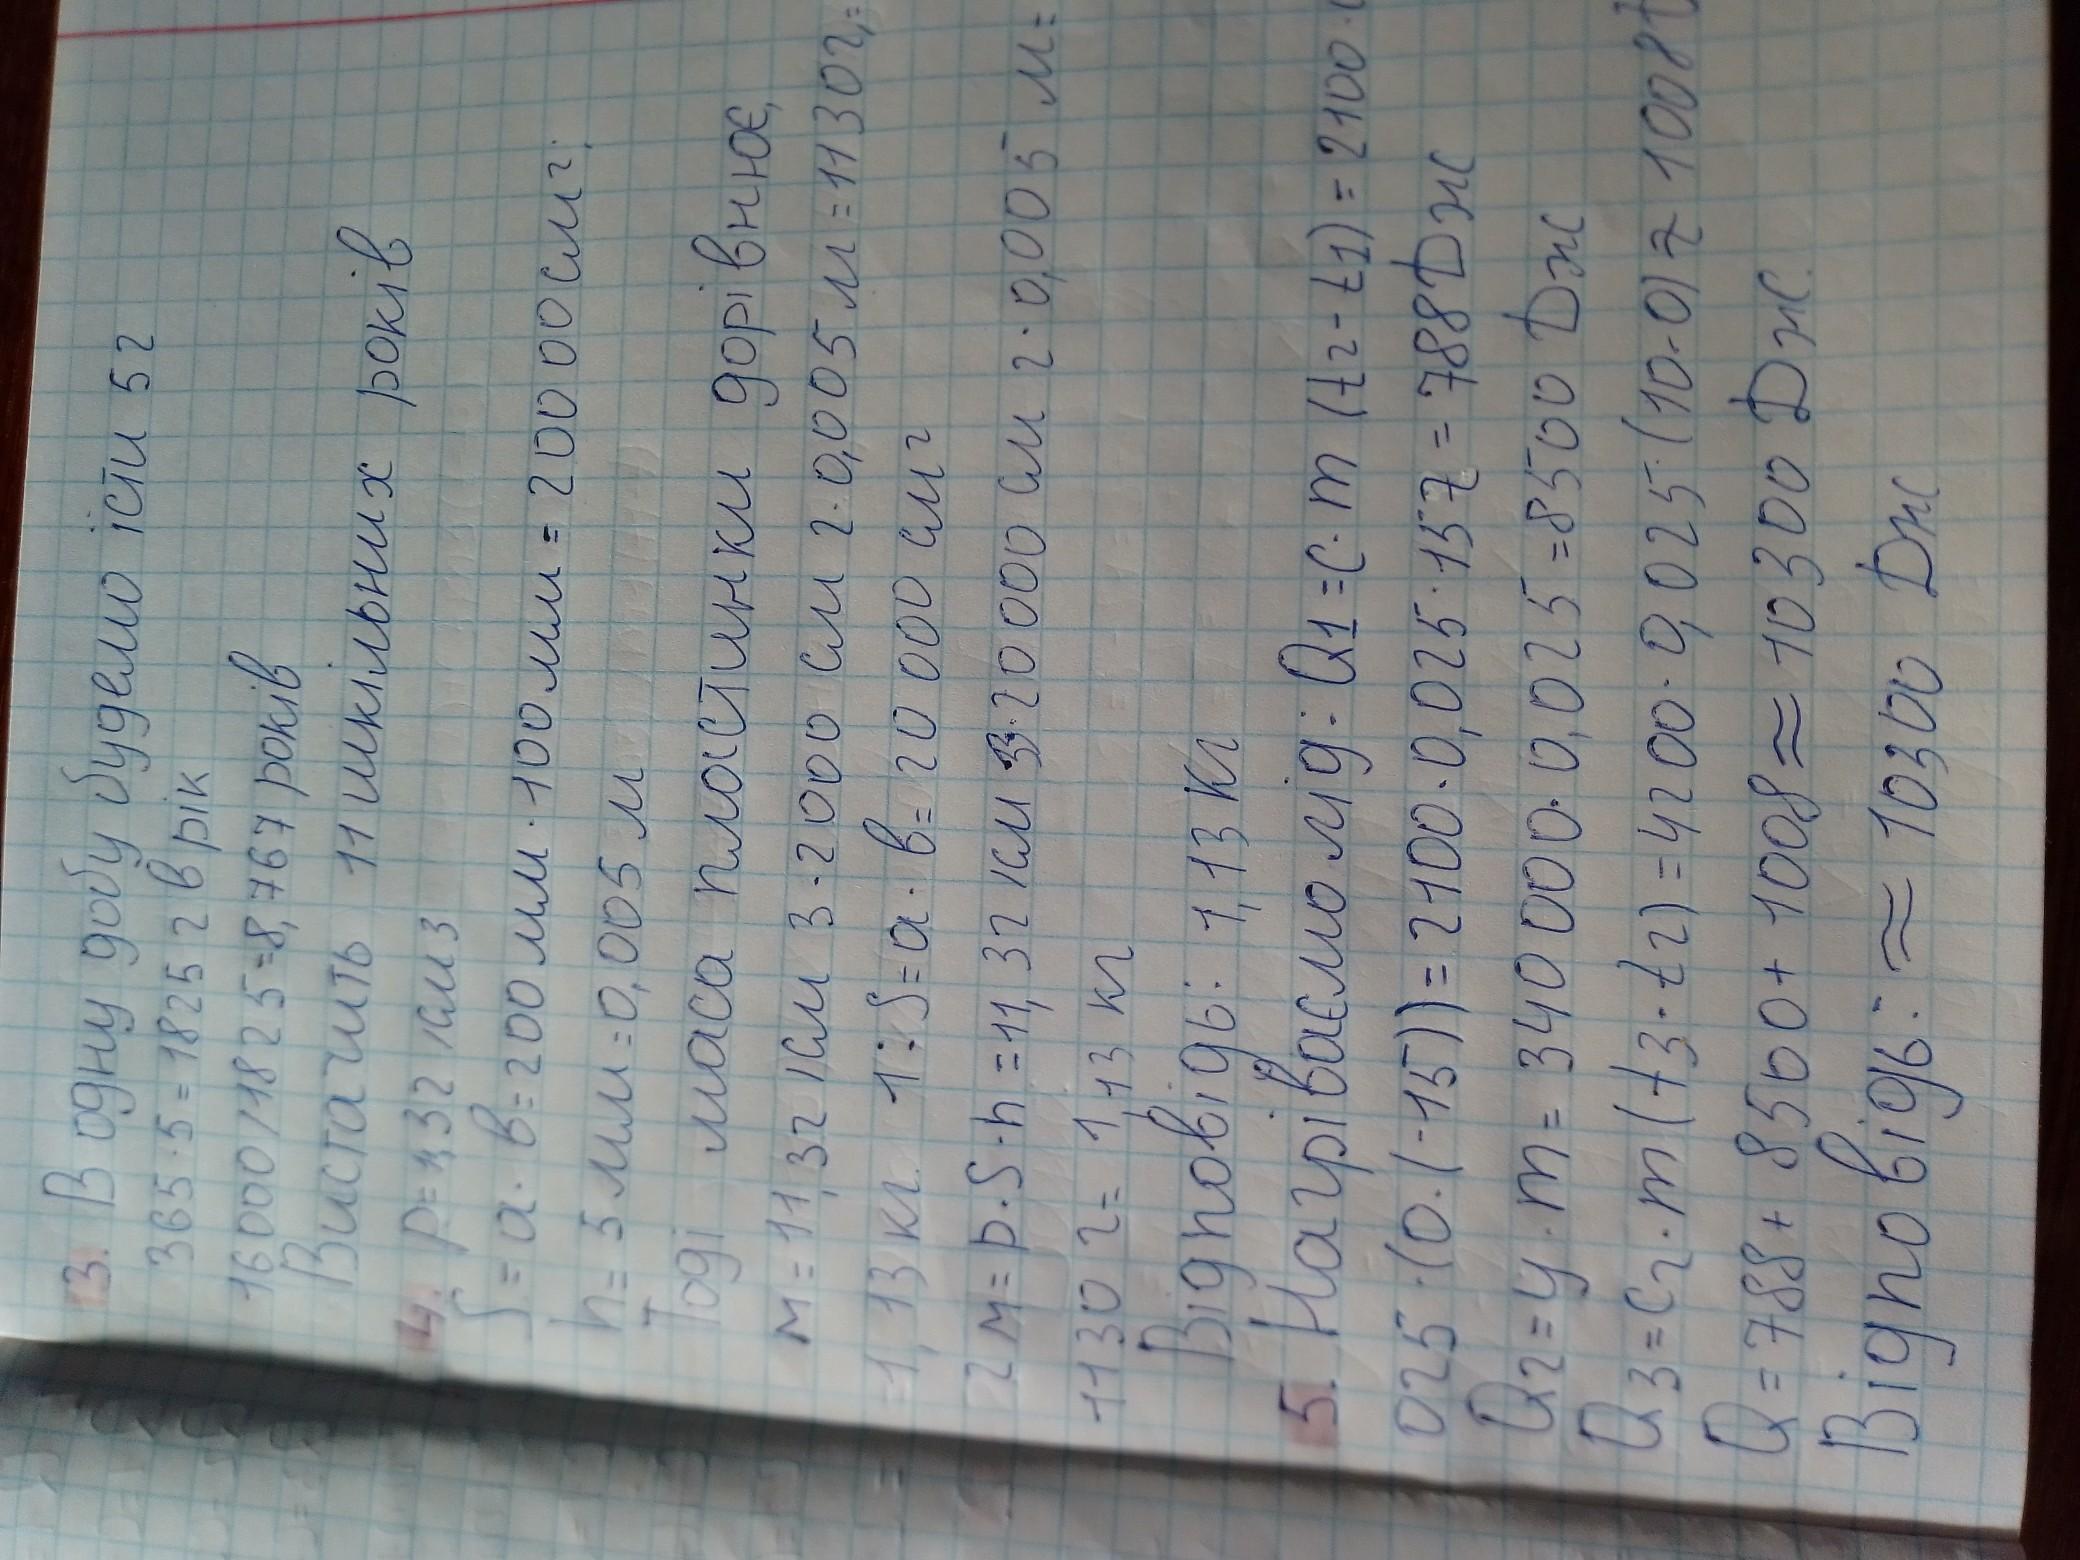 13. В одну добу будемо їсти 5 г
365·5=1825 г в рік
16000/1825=8,767 років
Вистачить 11 шкільних років
4. р=11,32 1см3
S=а·в=200мм·100мм=20000смг.
h=5мм=0,005м
Тоді маса пластинки дорівнює,
м=11,32 1см 3·2000 см г·0,005м=1130г,=
=1,13кг. 1:S=а·в=20 000 смг
2 м=р·S·h=11,32 1см 3·20000 см г·0,005 м=
1130 г= 1,13 кг
Відповідь: 1,13 кг
5. Нагріваємо лід: Q1=C·m (t2-t1)=2100·
025·(0·(-15))=2100·0,025·157=788Дж
Q2=y·m=340000·0,025=8500 Дж
Q3=C2·m(t3·t2)=4200·0,025·(10·0)≈1008
Q=788+8500+1008≈10300 Дж
Відповідь: ≈10300 Дж